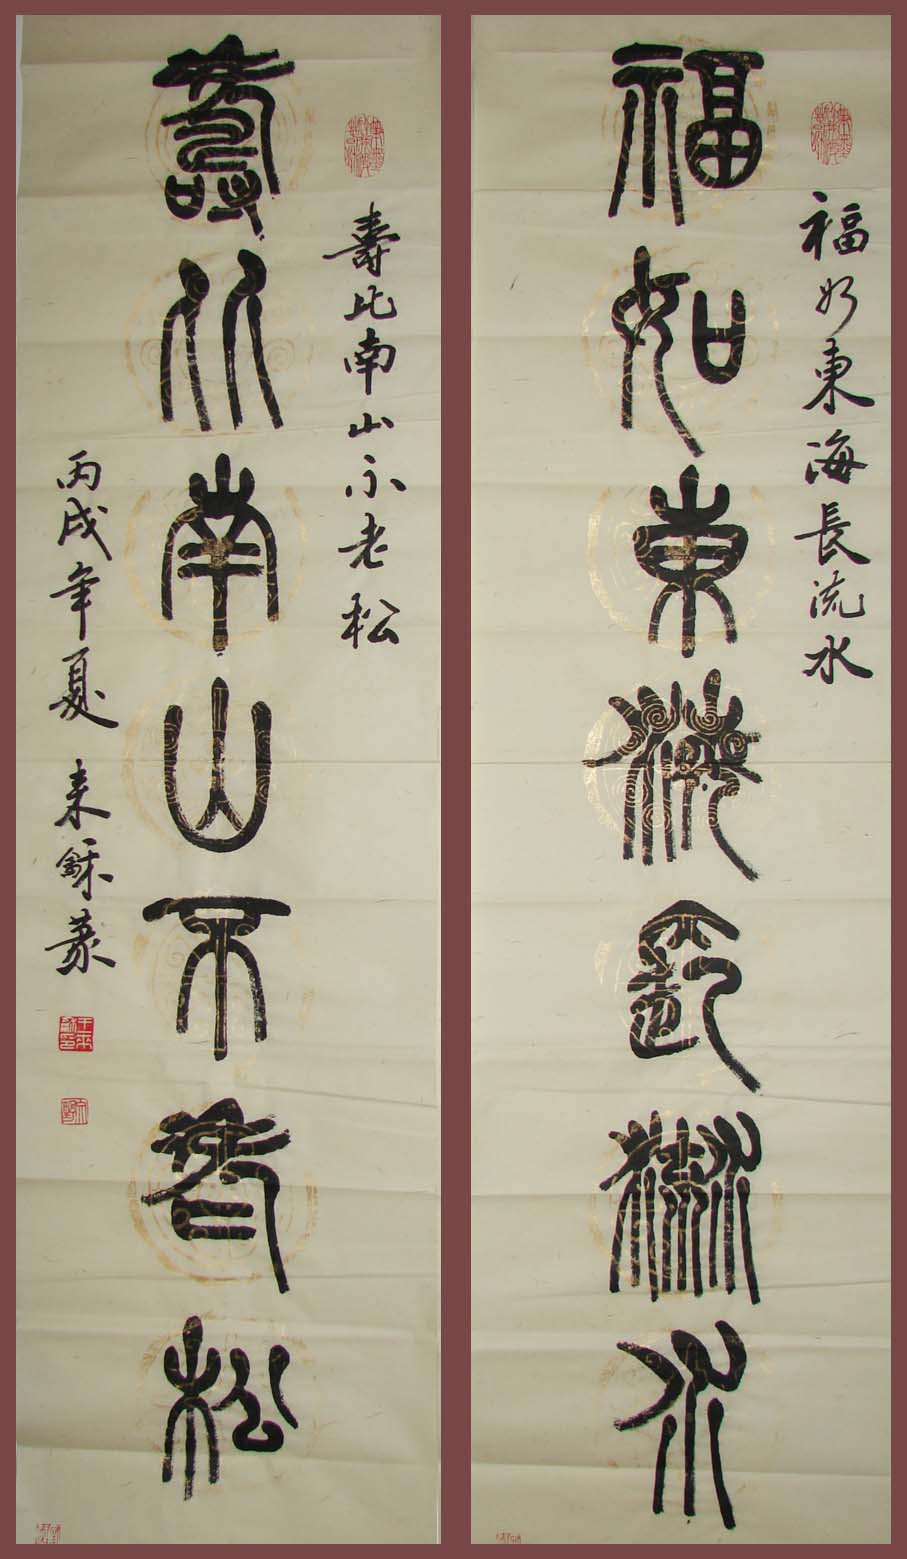 福如東海長流水
福如東海長流水
壽比南山不老松
壽比南山不老松
丙戌年夏 来 篆